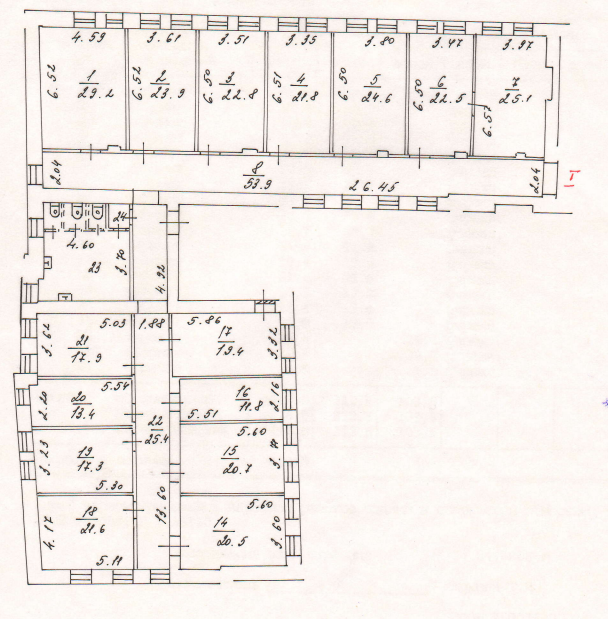 4.59
3.61
3.51
3.35
3.80
3.47
3.97
6.52
1
29.2
6.52
2
23.9
6.50
3
22.8
6.51
4
21.8
6.50
5
24.6
6.50
6
22.5
6.57
7
25.1
2.04
8
53.9
26.45
2.04
I
24
4.60
23
3.70
4.92
5.03
1.88
5.86
3.62
21
17.9
17
19.4
3.32
5.54
2.20
20
13.4
16
11.8
2.16
5.51
22
25.4
5.60
3.23
19
17.3
15
20.7
3.71
5.30
13.60
5.60
4.17
18
21.6
14
20.5
3.60
5.11